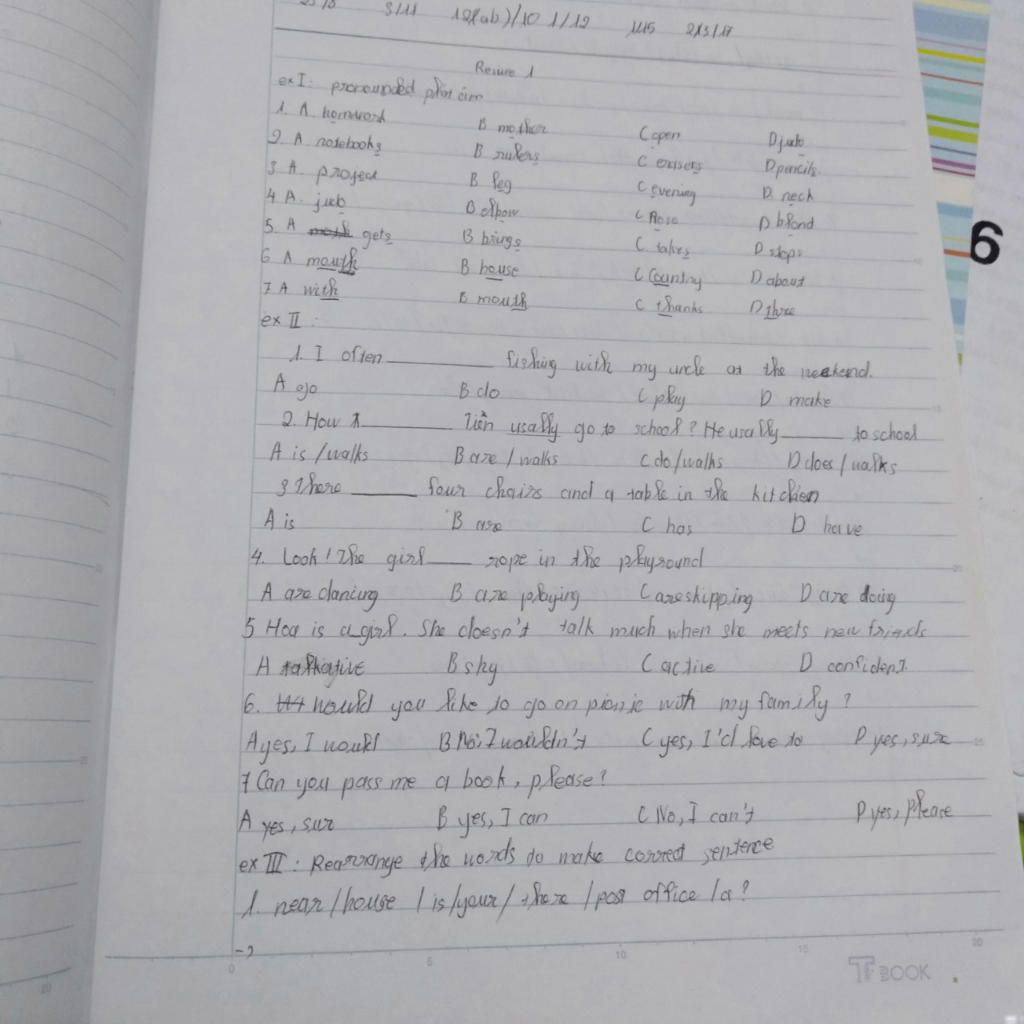 3/11 12(ab)/10 1/12 1115 213/17
Reviwe 1
ex I: pronounded
1. A. homework B mother C open D judo
2. A. notebooks B rulers C erasers D pencils
3 A. project B leg C evening D. neck
4 A. judo B elbow C nose D blond
5. A gets B brings C. takes D stops
6 A mouth B house C Country D about
7 A with B mouth C thanks D three
ex II:
1. I often ______ fishing with my uncle at the weekend.
A go B do C play D make
2. How ______ Tiến usally go to school? He usally ______ to school
A is/walks B are/walks C do/walks D does/walks
3 There ______ four chairs and a table in the kitchien
A is B are C has D have
4. Look! The girl ____ rope in the playground
A are dancing B are playing C are skipping D are doing
5 Hoa is a girl. She doesn't talk much when she meets new friends
A talkative B shy C active D confident
6. Would you like to go on picnic with my family?
A yes, I would B No, I wouldn't C yes, I'd love to D yes, sure
7 Can you pass me a book, please?
A yes, sur B yes, I can C No, I can't D yes, please
ex III: Rearrange the words to make correct sentence
1. near/house/is/your/there/post office/a?
->
0 5 10 15 20
TF BOOK
6